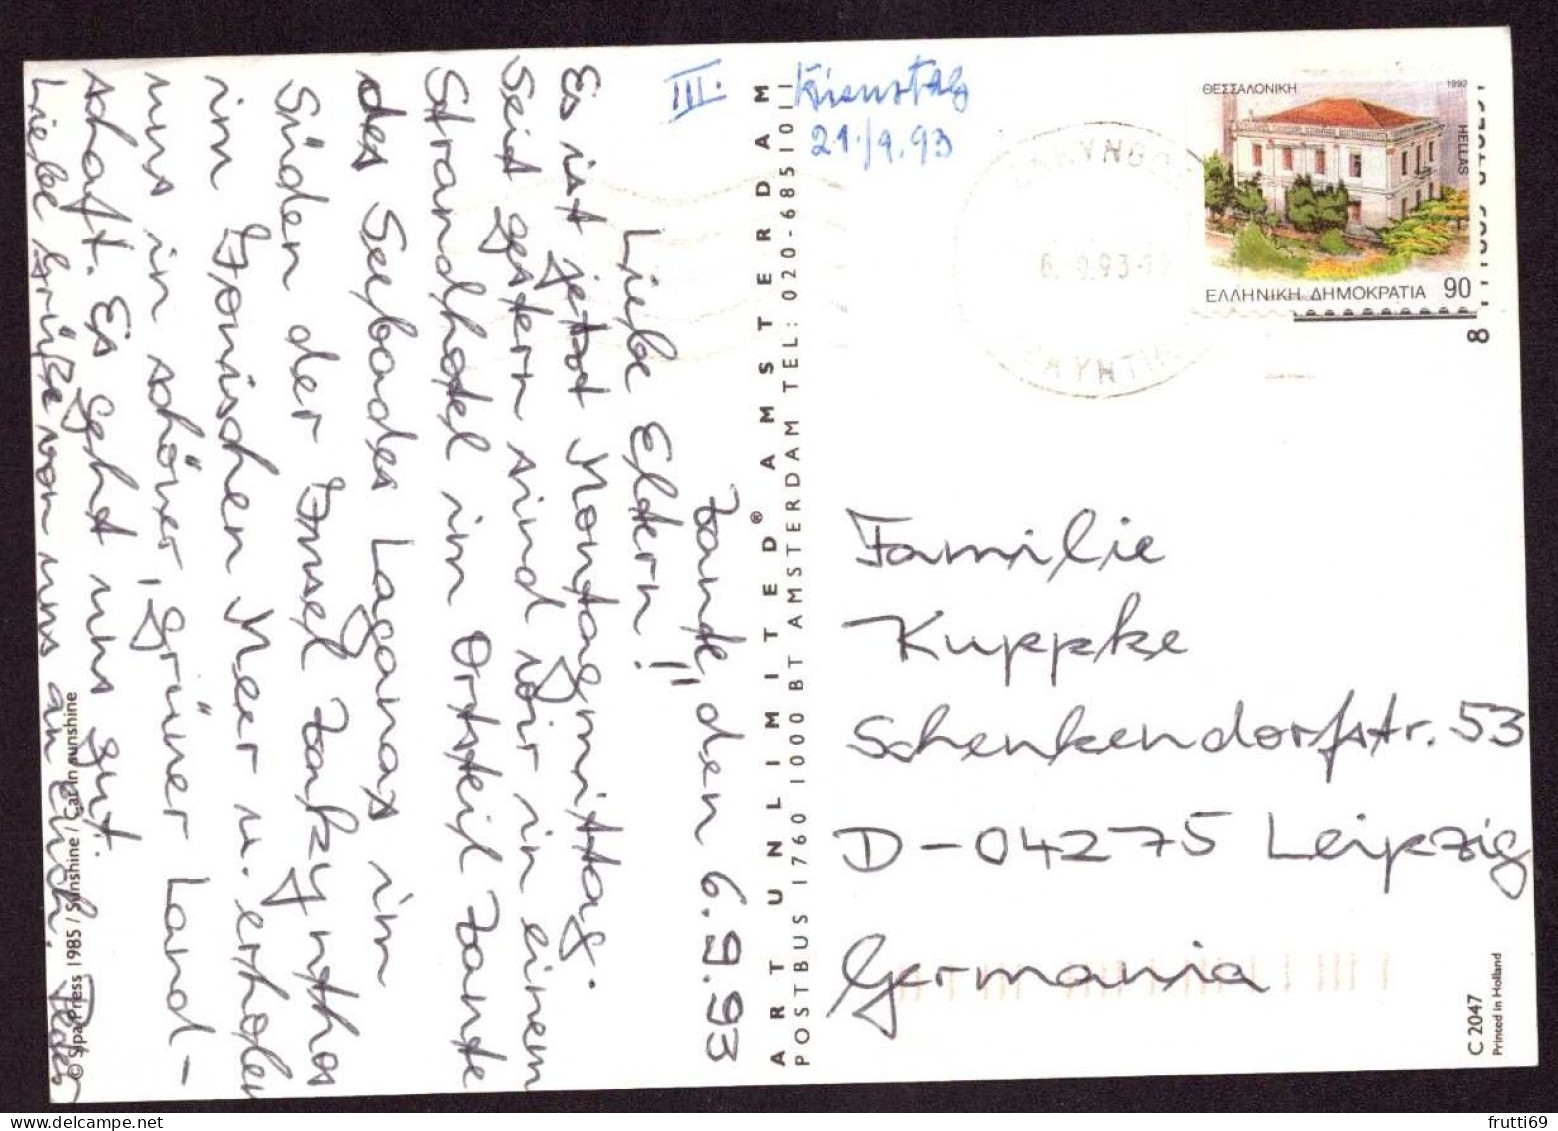 III.
Dienstag
21./9.93
Zante, den 6.9.93
Liebe Eltern!
Es ist jetzt Montagmittag.
Seit gestern sind wir in einem
Strandhotel im Ortsteil Zante
des Seebades Laganas im
Süden der Insel Zakynthos
im Ionischen Meer u. erholen
uns in schöner, grüner Land-
schaft. Es geht uns gut.
Liebe Grüße von uns an Euch.
© Sipa Press 1985 / Sunshine / Cat in sunshine
ART UNLIMITED® AMSTERDAM
POSTBUS 1760 1000 BT AMSTERDAM TEL: 020-6851011
ΘΕΣΣΑΛΟΝΙΚΗ
1992
HELLAS
ΕΛΛΗΝΙΚΗ ΔΗΜΟΚΡΑΤΙΑ 90
8
Familie
Kuppke
Schenkendorfstr. 53
D-04275 Leipzig
Germania
C 2047
Printed in Holland
frutti69